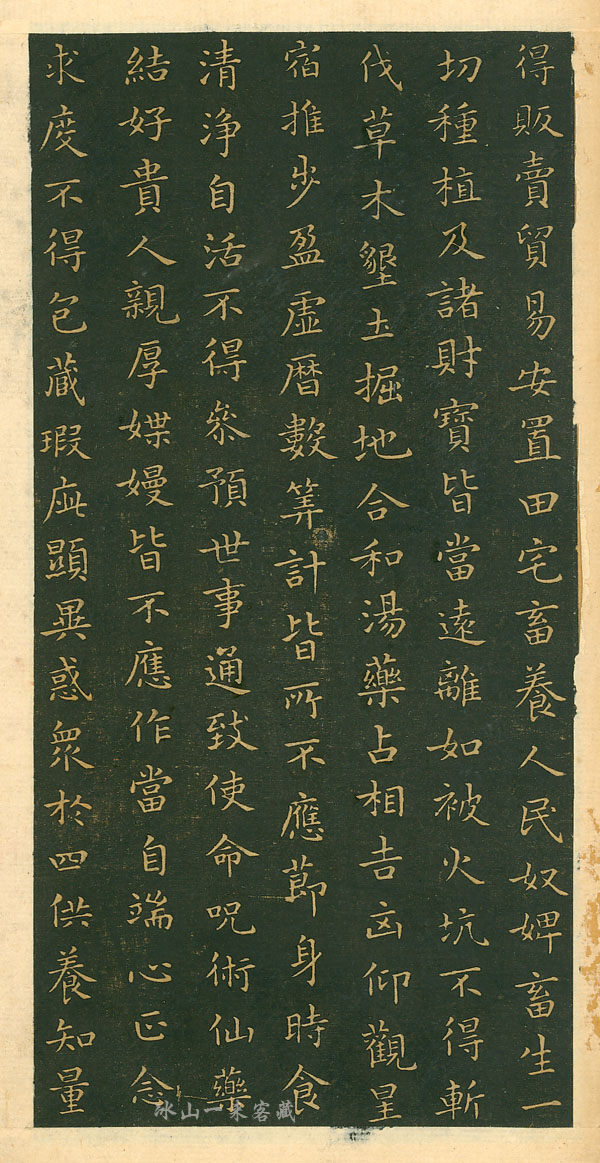 得販賣貿易安置田宅畜養人民奴婢畜生一
切種植及諸財寶皆當遠離如被火坑不得斬
伐草木墾土掘地合和湯藥占相吉凶仰觀星
宿推步盈虛曆數筭計皆所不應節身時食
清淨自活不得參預世事通致使命呪術仙藥
結好貴人親厚媟嫚皆不應作當自端心正念
求度不得包藏瑕疵顯異惑眾於四供養知量
冰山一来客藏